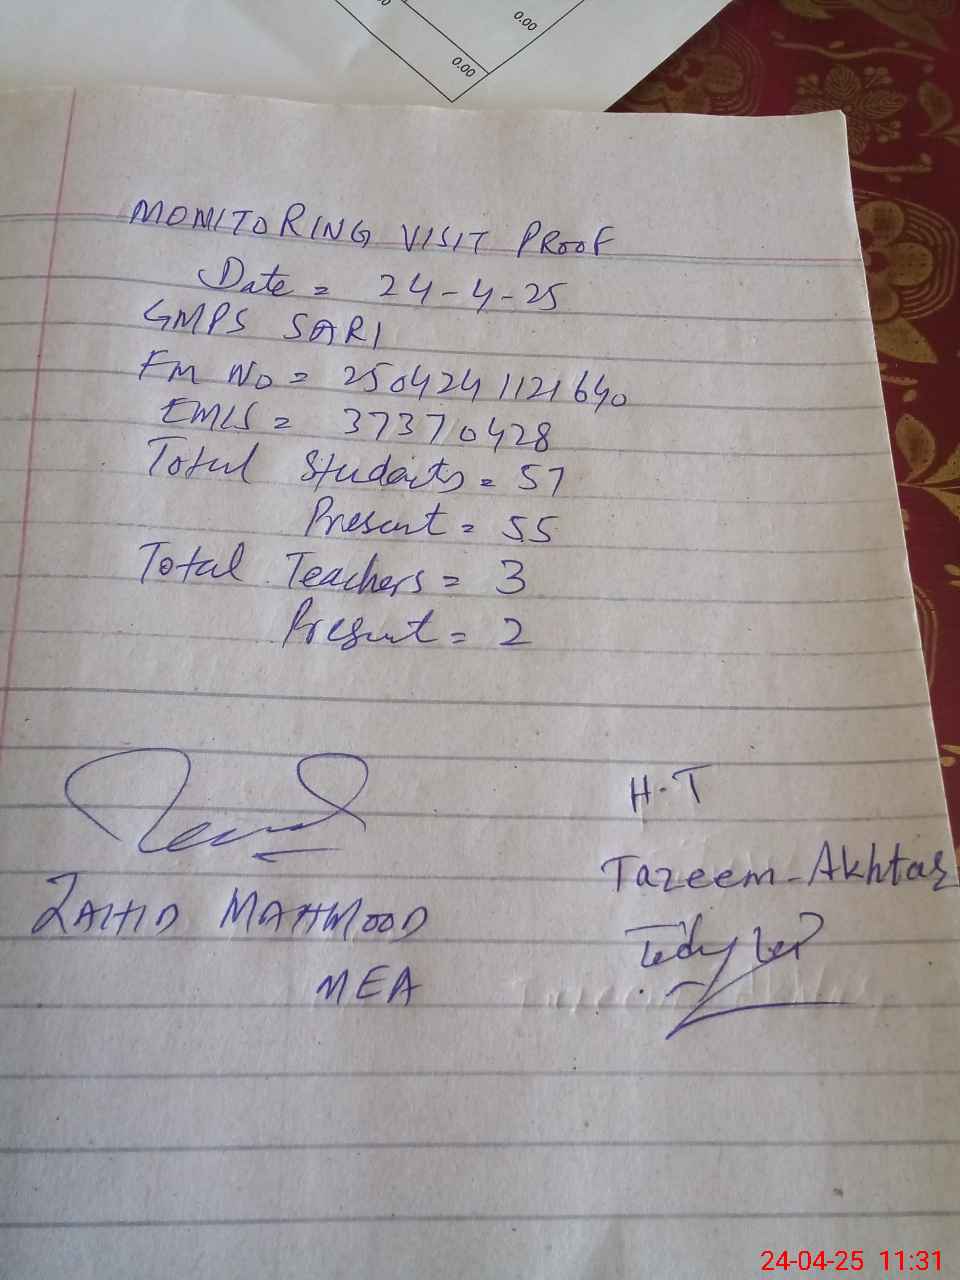 0.00
0.00
MONITORING VISIT PROOF
Date = 24-4-25
GMPS SARI
FM NO = 2504241121640
EMIS = 37370428
Total Students = 57
Present = 55
Total Teachers = 3
Present = 2
H.T
Tazeem-Akhtar
ZAHID MAHMOOD
MEA
24-04-25 11:31